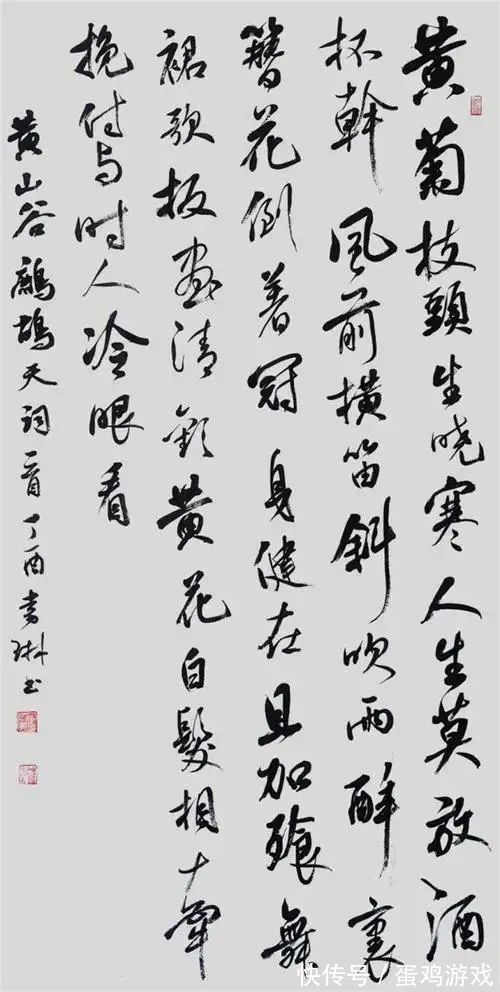 黄菊枝頭生晓寒人生莫放酒
杯幹風前横笛斜吹雨醉裏
簪花倒着冠身健在且加餐舞
裙歌板盡清歡黄花白髮相牽
挽付与时人冷眼看
黄山谷鷓鴣天词一首丁酉琳书
快传号/蛋鸡游戏